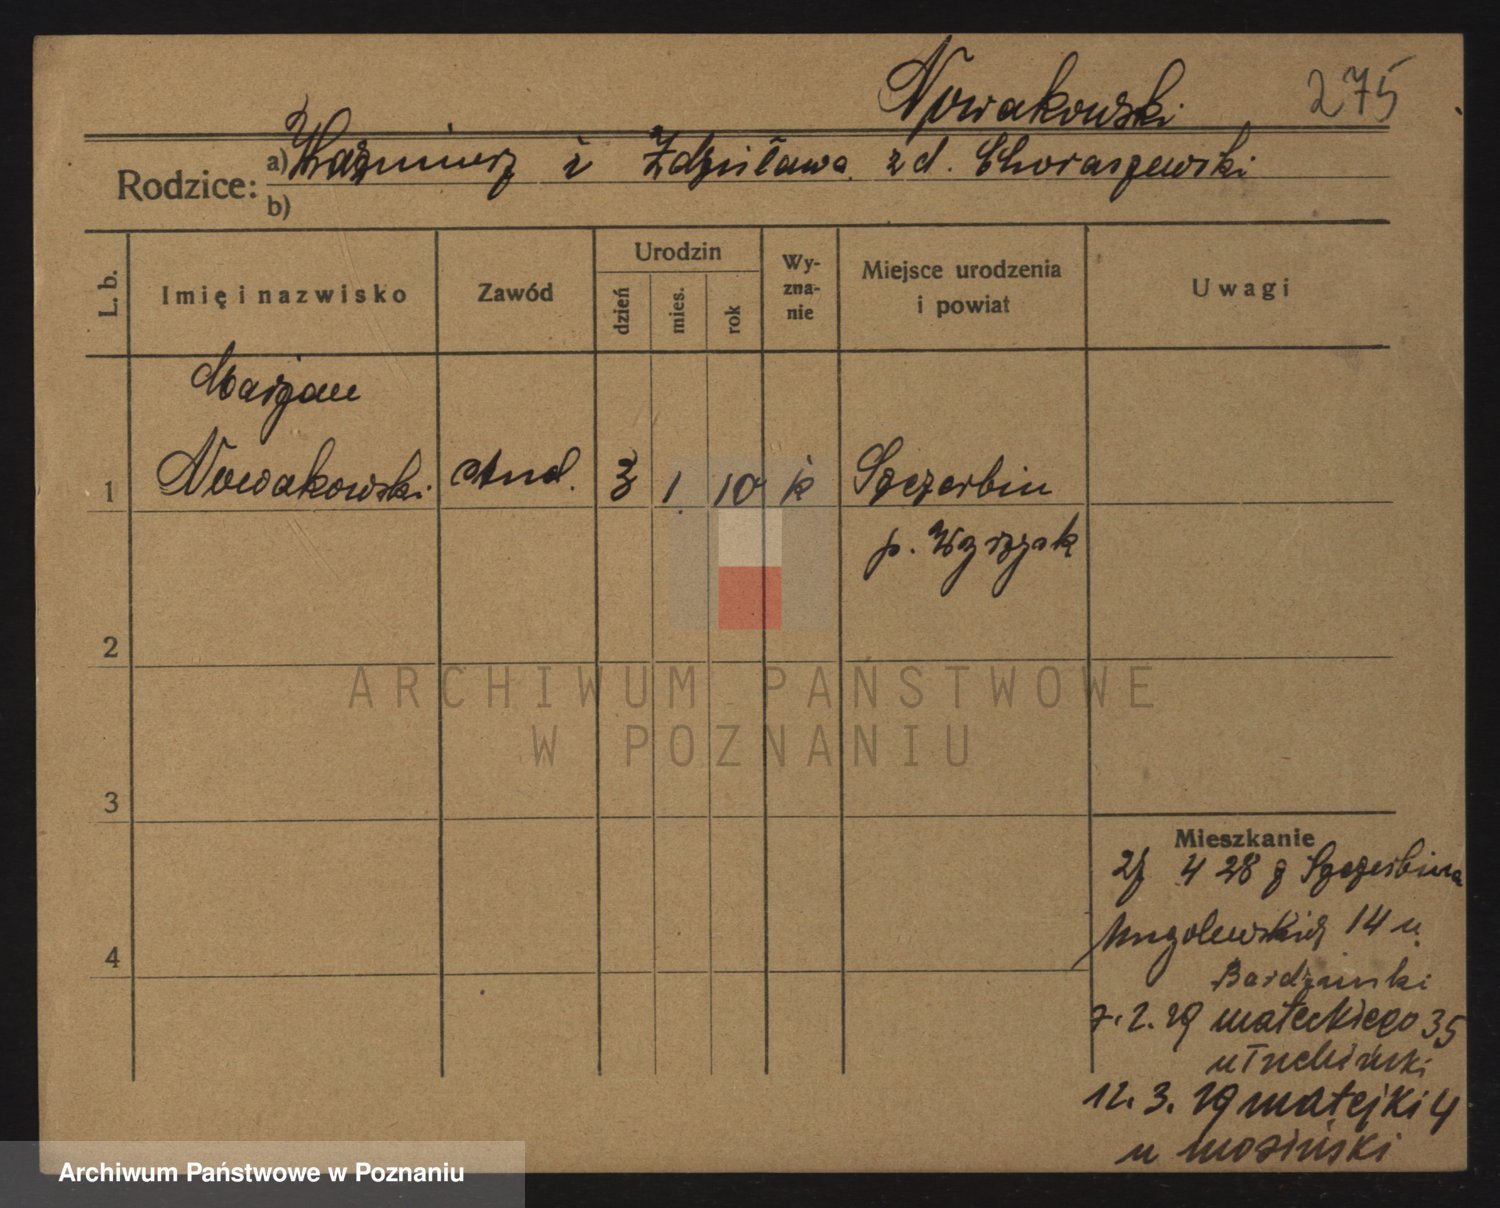 Nowakowski 275
Rodzice: a) Kaźmierz i Zdzisława zd. Choraszewski
b)
L. b. Imię i nazwisko Zawód Urodzin dzień mies. rok Wy-zna-nie Miejsce urodzenia i powiat Uwagi
Marjan
1 Nowakowski stud. 3 1 10 k Szczerbin
p. Wyrzysk
2
ARCHIWUM PAŃSTWOWE
W POZNANIU
3
Mieszkanie
4 28 z Szczerbina
14 u
4 Bardziński
7. 2. 29 Małeckiego 35
u
12. 3. 29 Matejki 4
u Mosiński
Archiwum Państwowe w Poznaniu